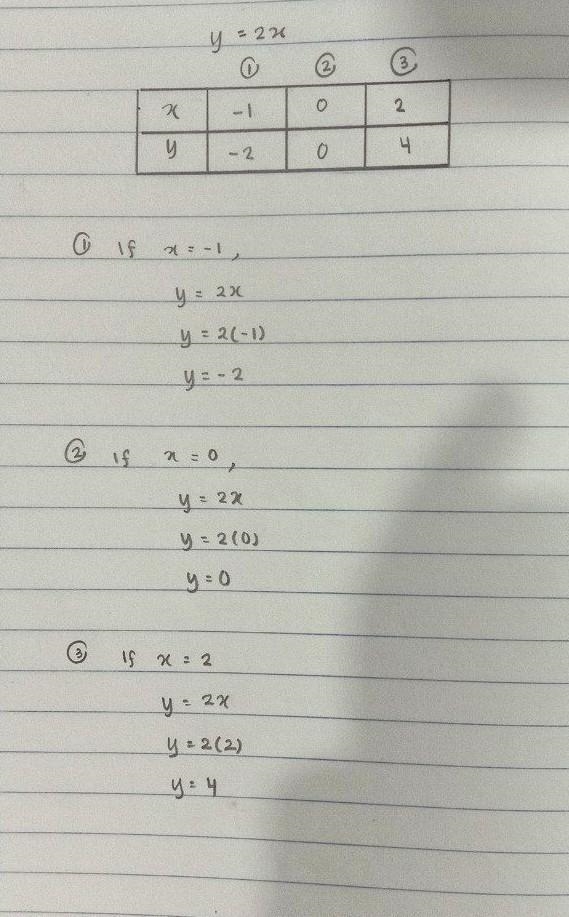 y = 2x
① ② ③
x -1 0 2
y -2 0 4
① If x = -1,
y = 2x
y = 2(-1)
y = -2
② If x = 0,
y = 2x
y = 2(0)
y = 0
③ If x = 2
y = 2x
y = 2(2)
y = 4